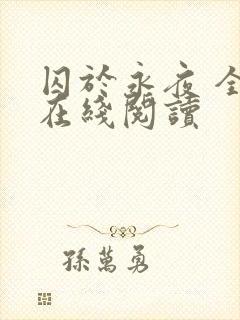 囚於永夜 全
在綫閱讀
孫萬勇